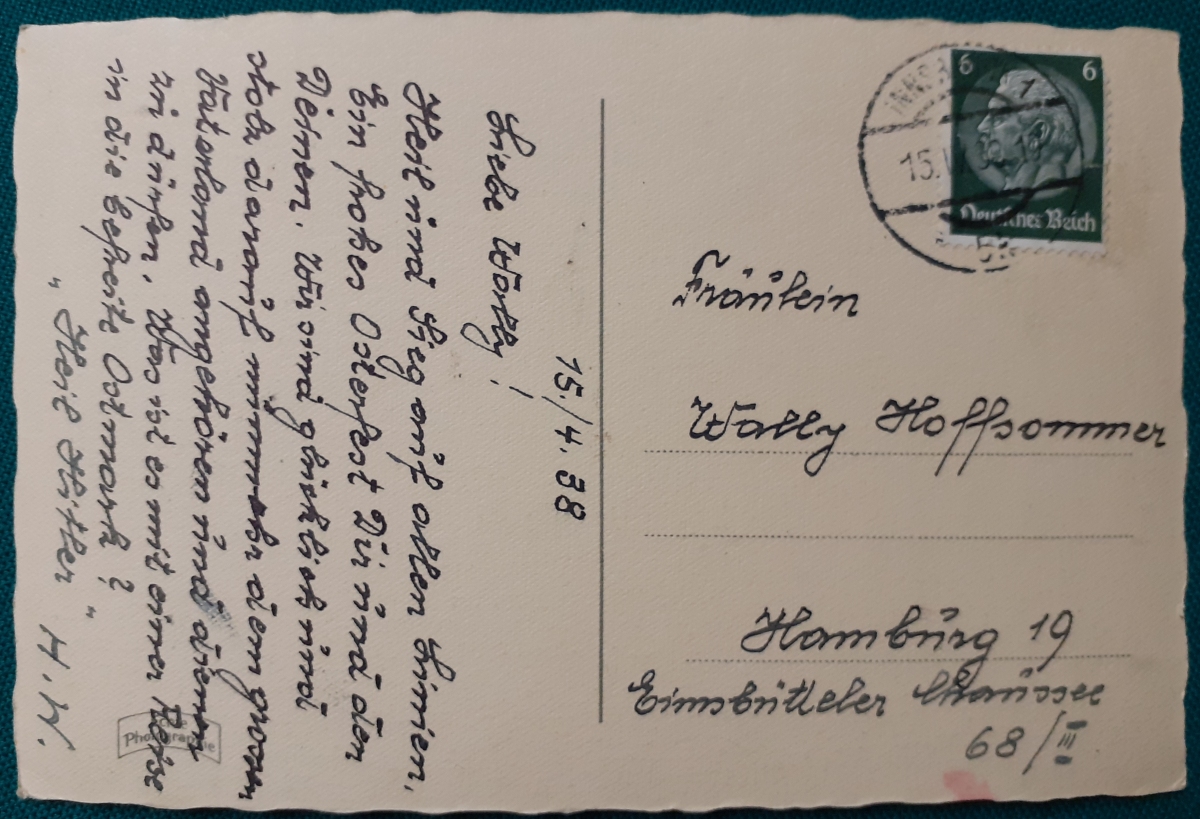 15./4. 38
Liebe Wally!
Heil und Sieg auf allen Linien,
Ein frohes Osterfest Dir und den
Deinen. Wir sind glücklich und
stolz darauf nunmehr dem grossen
Vaterland angehören und dienen
zu dürfen. Was ist es mit einer Reise
in die befreite Ostmark?
"Heil Hitler"
H. W.
Photographie
6 6
Deutsches Reich
15.
Fräulein
Wally Hoffsommer
Hamburg 19
Eimsbütteler Chaussee
68/III